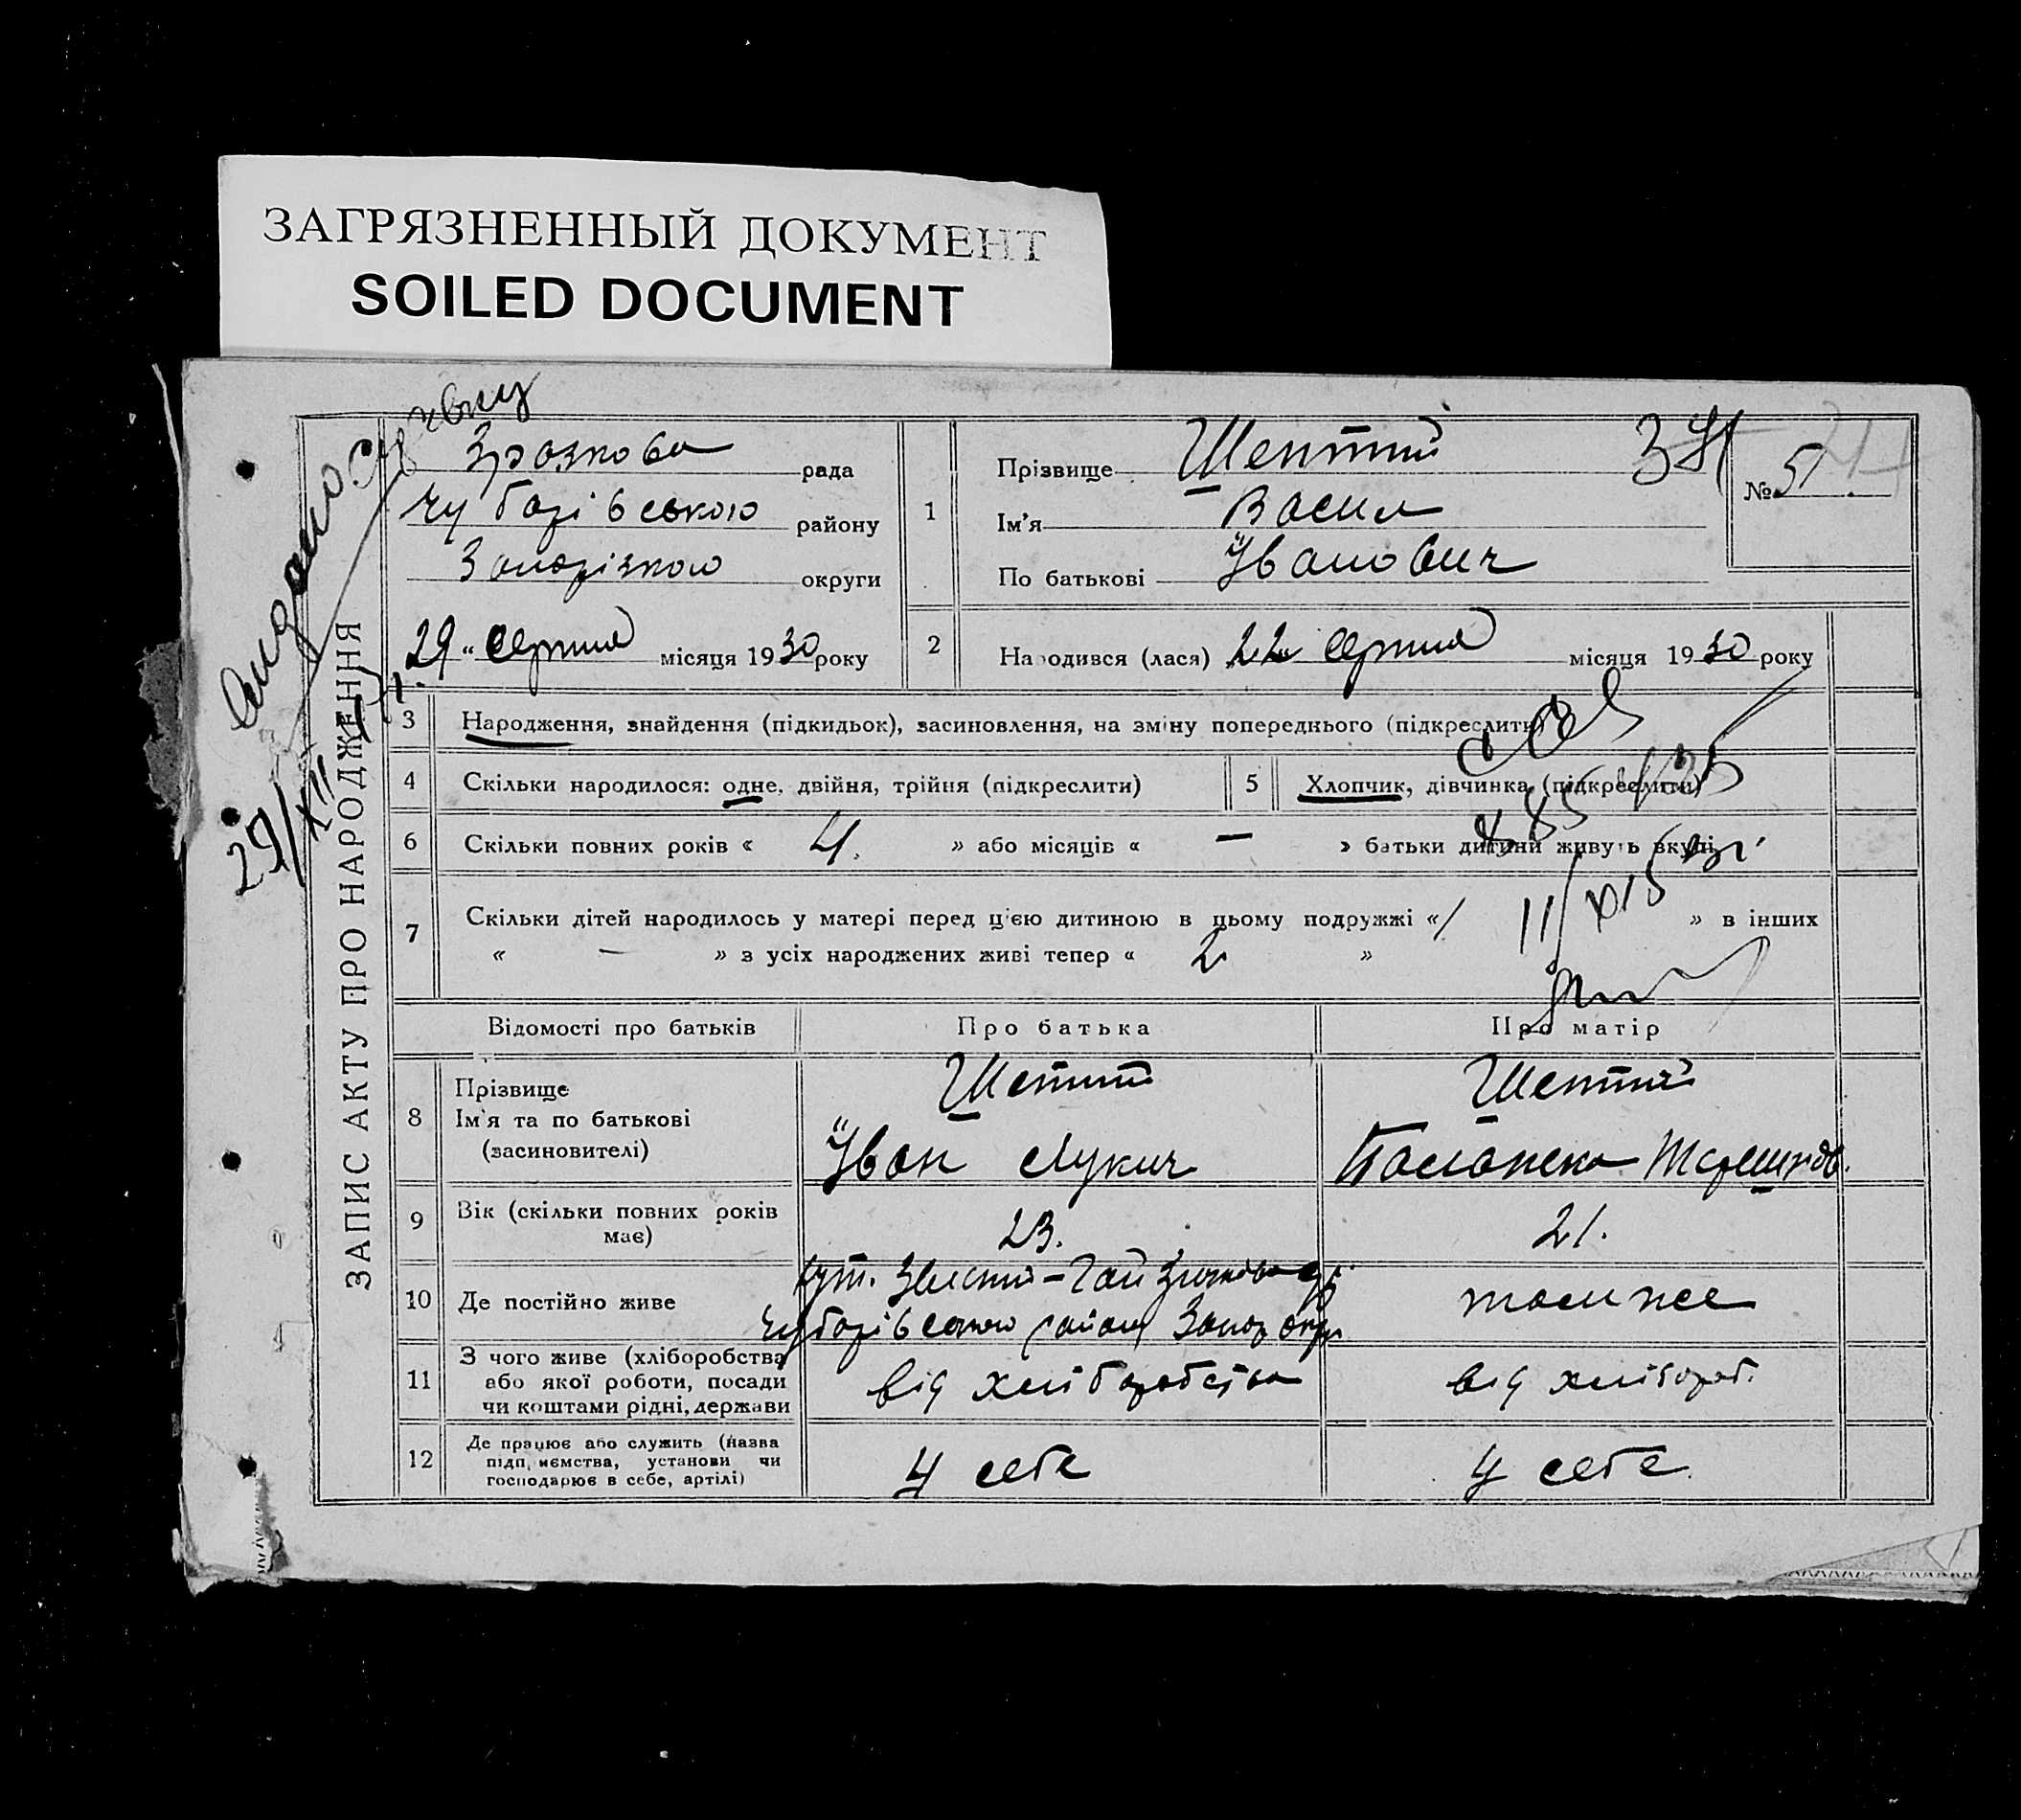 ЗАГРЯЗНЕННЫЙ ДОКУМЕНТ
SOILED DOCUMENT
ЗАПИС АКТУ ПРО НАРОДЖЕННЯ
Видано
29/XII
Зразкова рада
Чубарівською району
Запорізкою округи
29 " серпня місяця 1930 року
1
Прізвище Шептий
Ім'я Васил
По батькові Іванович
№ 51
2
Народився (лася) 22 серпня місяця 1930 року
3 Народження, знайдення (підкидьок), засиновлення, на зміну попереднього (підкреслити)
4 Скільки народилося: одне, двійня, трійня (підкреслити)
5 Хлопчик, дівчинка (підкреслити)
6 Скільки повних років « 4. » або місяців « — » батьки дитини живуть вкупі
7 Скільки дітей народилось у матері перед ц'єю дитиною в цьому подружжі « 1 » в інших
« — » з усіх народжених живі тепер « 2 »
Відомості про батьків
Про батька
Про матір
8
Прізвище
Ім'я та по батькові
(засиновителі)
Шептий
Іван Лукич
Шептий
Паланека
9
Вік (скільки повних років
має)
23.
21.
10 Де постійно живе
хут. Зелений-Гай
Чубарівського району Запор окр
там же
11
З чого живе (хліборобства
або якої роботи, посади
чи коштами рідні, держави
від хліборобства
від хлібороб.
12
Де працює або служить (назва
підприємства, установи чи
господарює в себе, артілі)
У себе
У себе